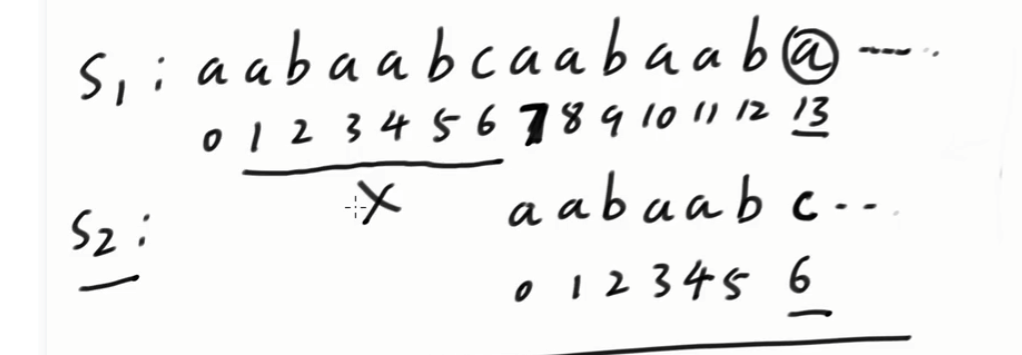 S1: a a b a a b c a a b a a b a ----..
0 1 2 3 4 5 6 7 8 9 10 11 12 13
X
S2: a a b a a b c ---.
0 1 2 3 4 5 6